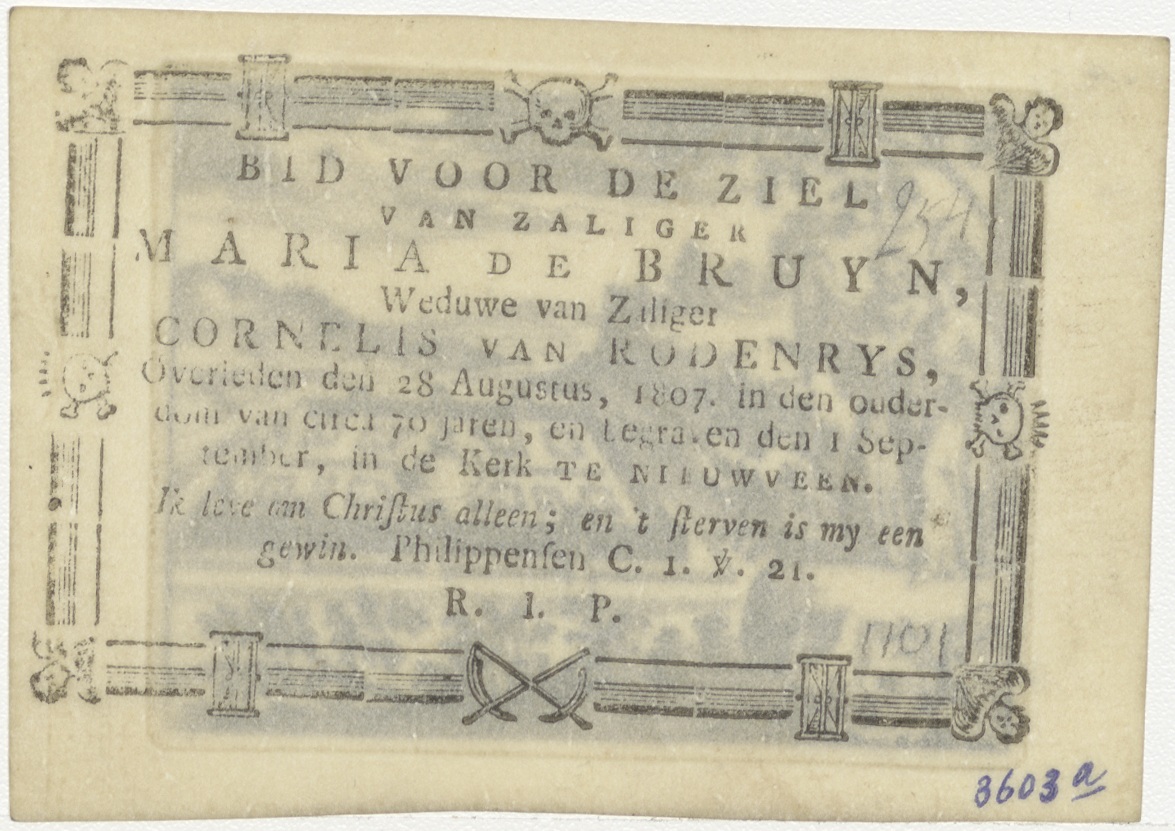 BID VOOR DE ZIEL
VAN ZALIGER
MARIA DE BRUYN,
Weduwe van Zaliger
CORNELIS VAN RODENRYS,
Overleden den 28 Augustus, 1807. in den ouder-
dom van circa 70 jaren, en begraven den 1 Sep-
tember, in de Kerk TE NIEUWVEEN.
Ik leve om Chriſtus alleen; en 't ſterven is my een
gewin. Philippenſen C. 1. ℣. 21.
R. I. P.
254
1101
3603 a